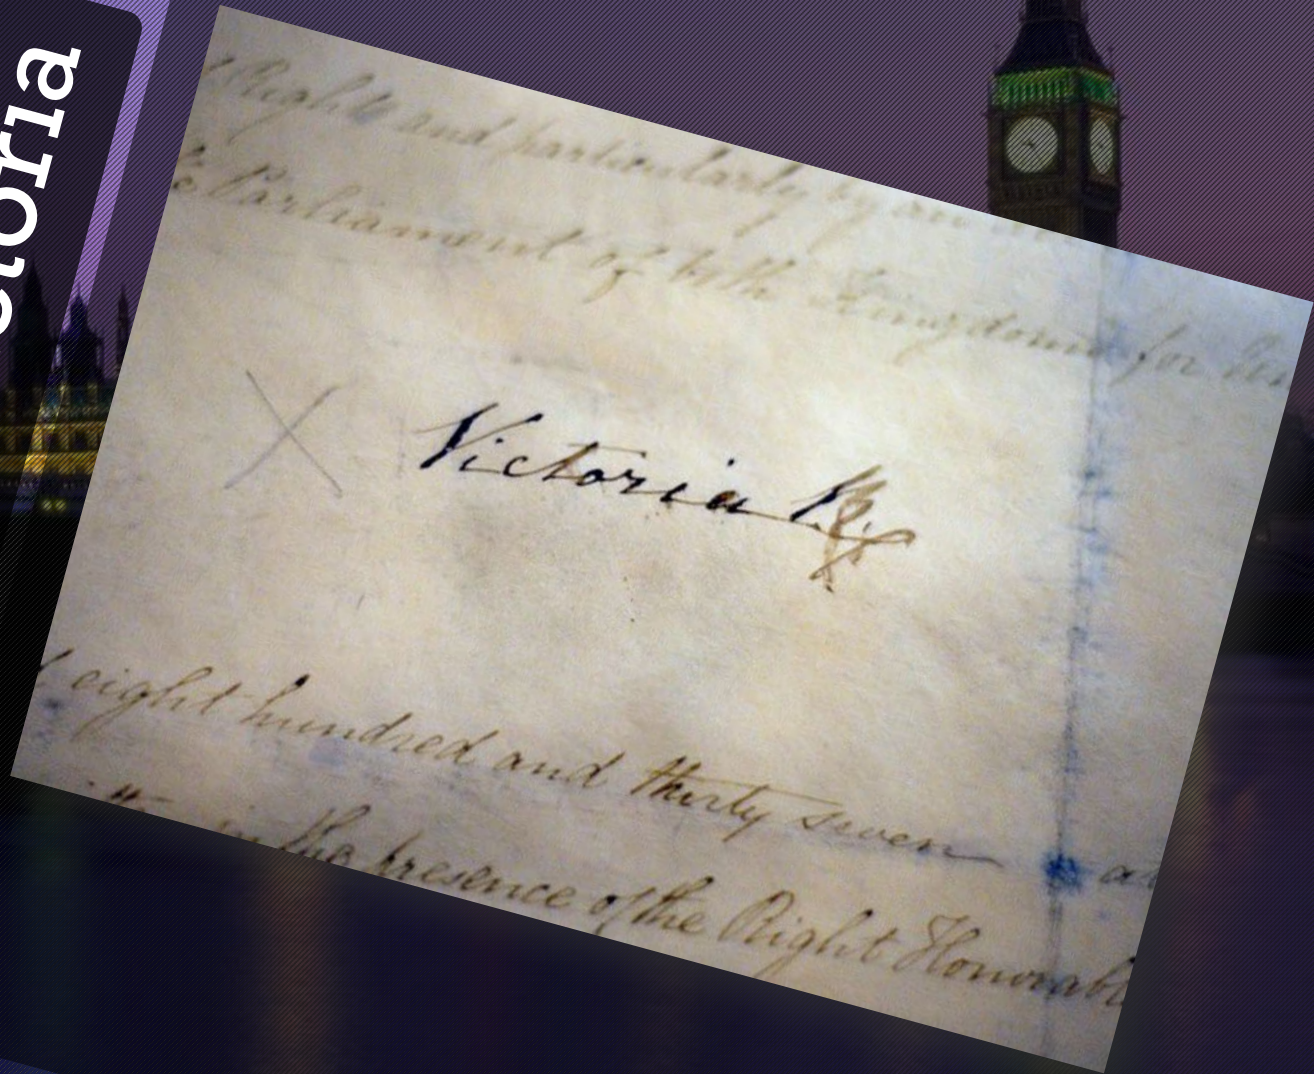 ctoria
Right and particularly by an
Parliament of both Kingdoms for
Victoria R
eight hundred and thirty seven
in the presence of the Right Honorabl